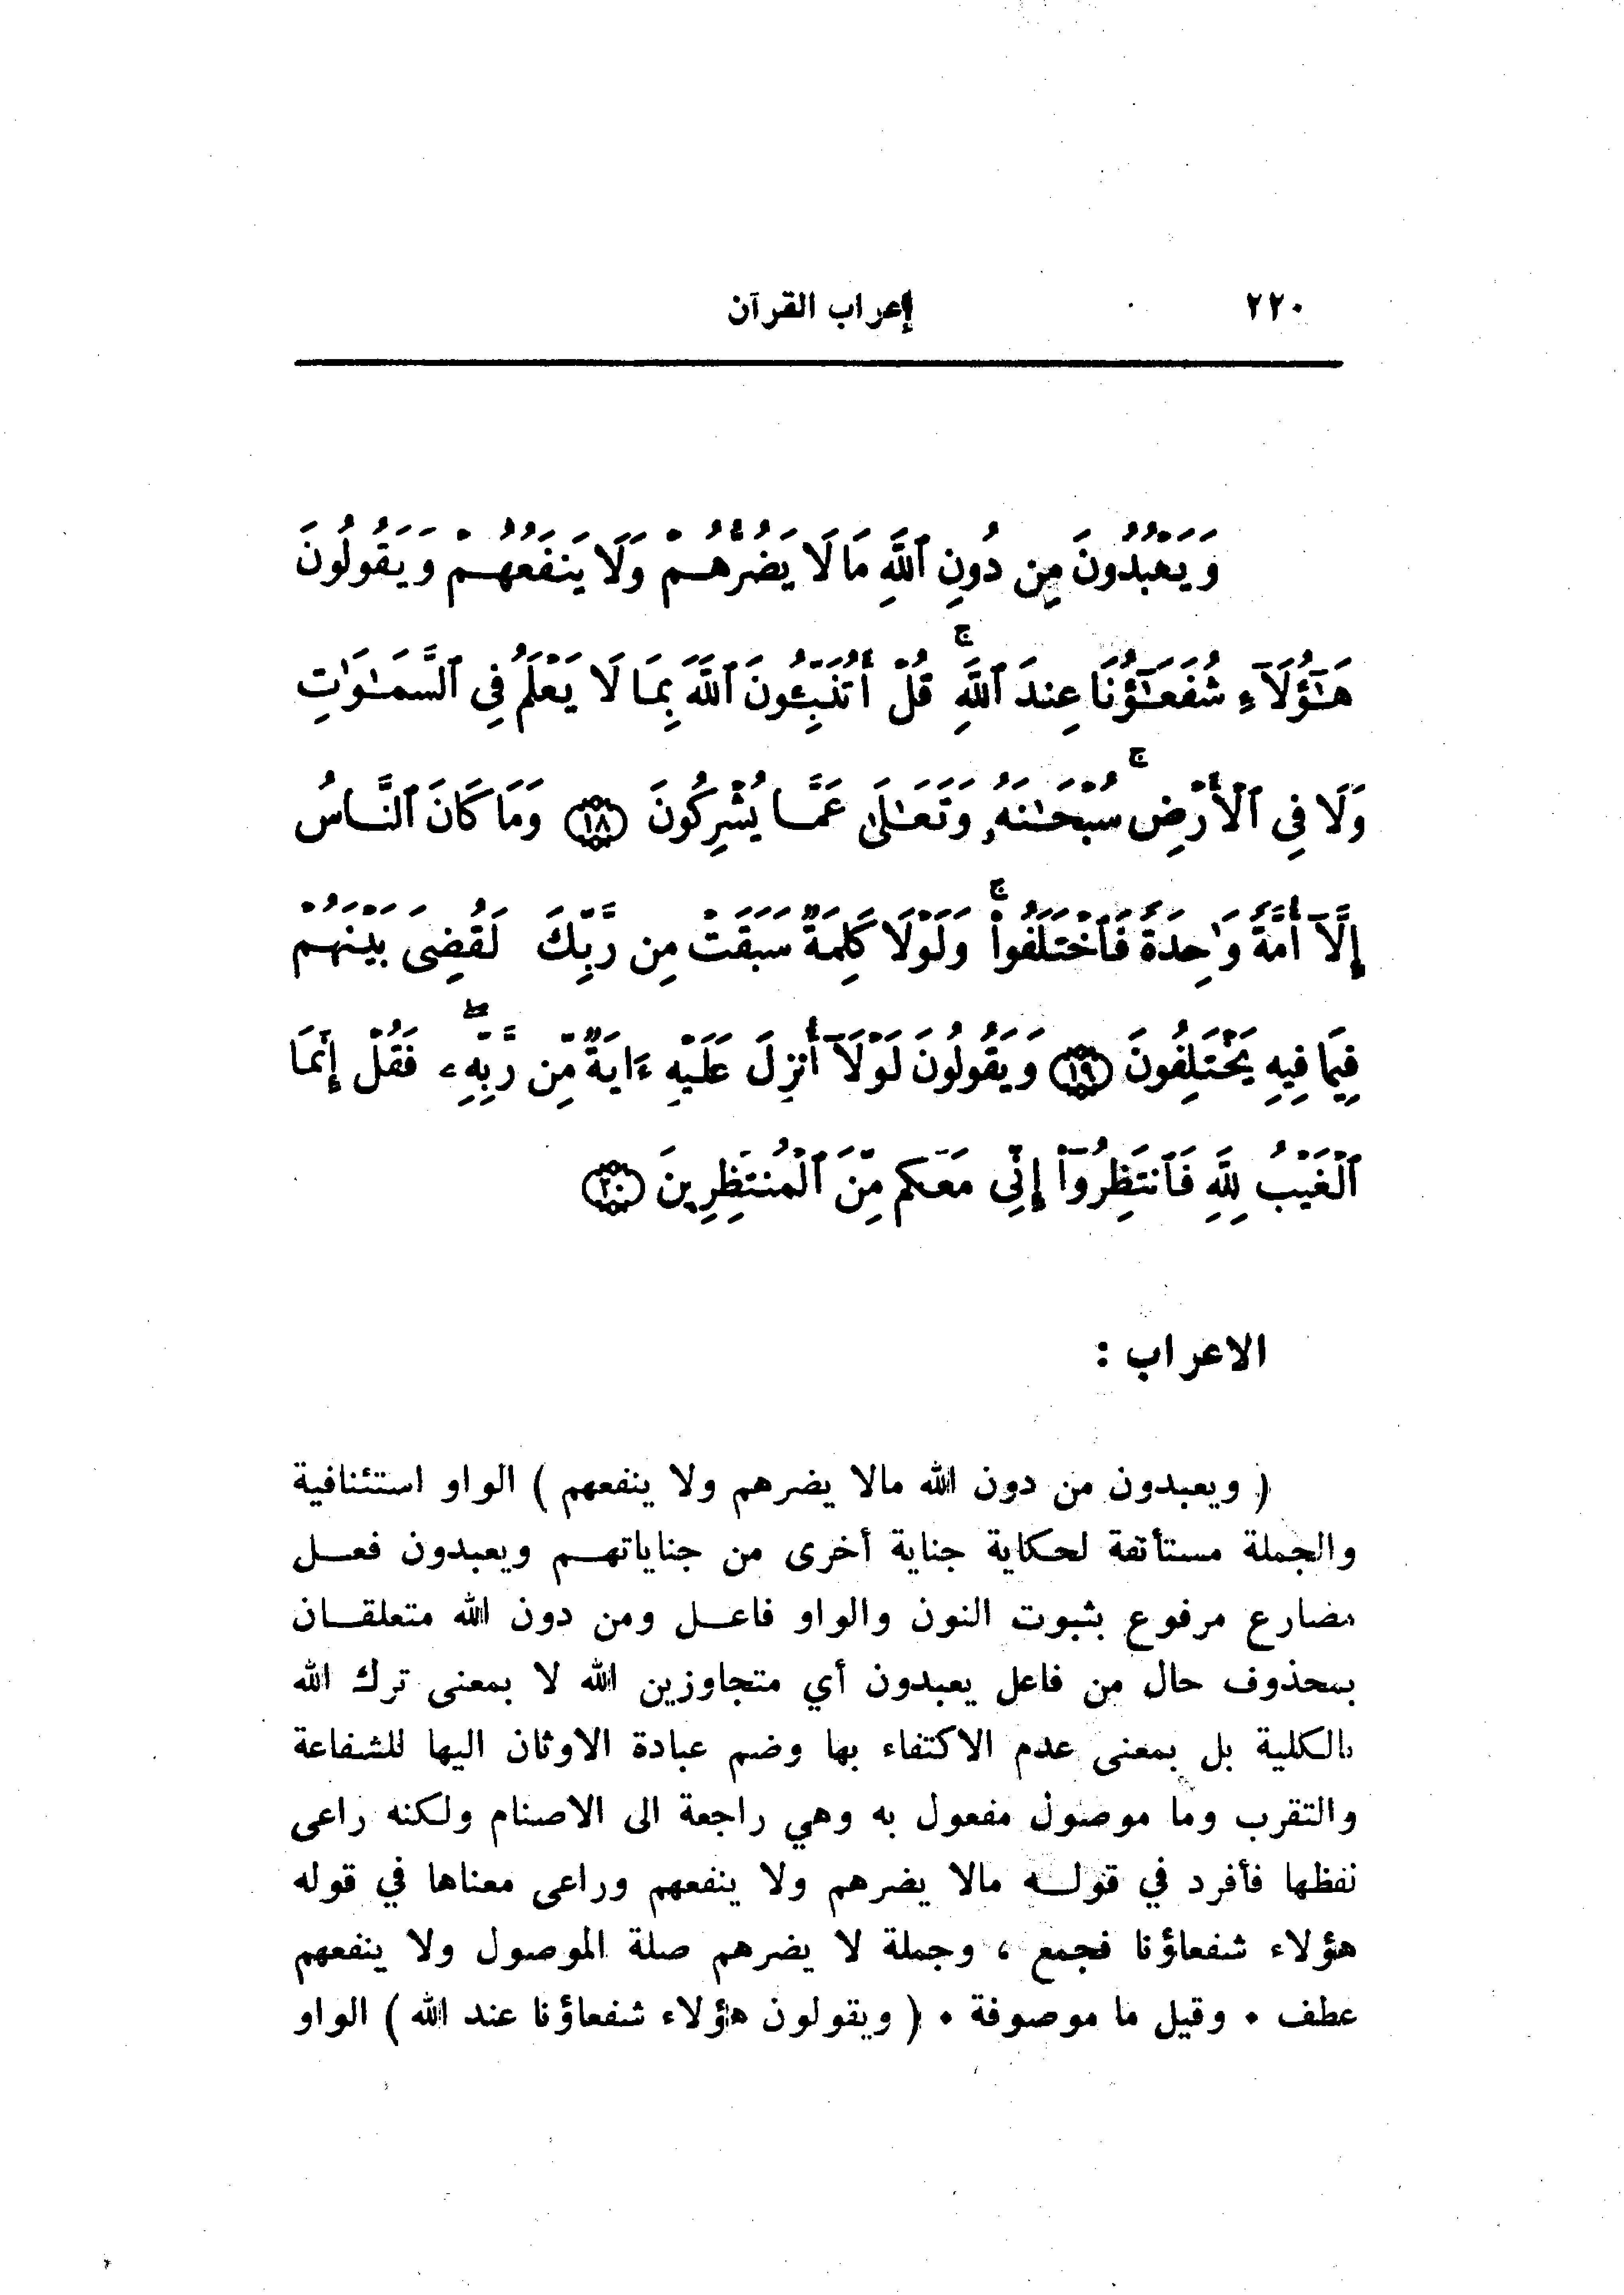 ٢٢٠ إعراب القرآن
وَيَعْبُدُونَ مِن دُونِ ٱللَّهِ مَا لَا يَضُرُّهُمْ وَلَا يَنفَعُهُمْ وَيَقُولُونَ
هَٰٓؤُلَآءِ شُفَعَٰٓؤُنَا عِندَ ٱللَّهِ ۚ قُلْ أَتُنَبِّـُٔونَ ٱللَّهَ بِمَا لَا يَعْلَمُ فِى ٱلسَّمَٰوَٰتِ
وَلَا فِى ٱلْأَرْضِ ۚ سُبْحَٰنَهُۥ وَتَعَٰلَىٰ عَمَّا يُشْرِكُونَ ١٨ وَمَا كَانَ ٱلنَّاسُ
إِلَّآ أُمَّةً وَٰحِدَةً فَٱخْتَلَفُوا۟ ۚ وَلَوْلَا كَلِمَةٌ سَبَقَتْ مِن رَّبِّكَ لَقُضِىَ بَيْنَهُمْ
فِيمَا فِيهِ يَخْتَلِفُونَ ١٩ وَيَقُولُونَ لَوْلَآ أُنزِلَ عَلَيْهِ ءَايَةٌ مِّن رَّبِّهِۦ ۖ فَقُلْ إِنَّمَا
ٱلْغَيْبُ لِلَّهِ فَٱنتَظِرُوٓا۟ إِنِّى مَعَكُم مِّنَ ٱلْمُنتَظِرِينَ ٢٠
الاعراب :
( ويعبدون من دون الله مالا يضرهم ولا ينفعهم ) الواو استئنافية
والجملة مستأنفة لحكاية جناية أخرى من جناياتهم ويعبدون فعل
مضارع مرفوع بثبوت النون والواو فاعل ومن دون الله متعلقان
بمحذوف حال من فاعل يعبدون أي متجاوزين الله لا بمعنى ترك الله
بالكلية بل بمعنى عدم الاكتفاء بها وضم عبادة الاوثان اليها للشفاعة
والتقرب وما موصول مفعول به وهي راجعة الى الاصنام ولكنه راعى
لفظها فأفرد في قوله مالا يضرهم ولا ينفعهم وراعى معناها في قوله
هؤلاء شفعاؤنا فجمع ، وجملة لا يضرهم صلة الموصول ولا ينفعهم
عطف . وقيل ما موصوفة . ( ويقولون هؤلاء شفعاؤنا عند الله ) الواو